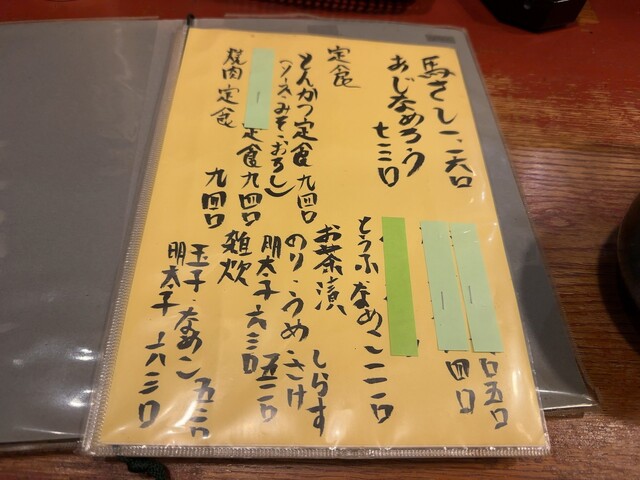 馬さし 一、一六〇
あじなめろう 七三〇
定食
とんかつ定食 九四〇
(ソース・みそ・おろし)
定食 九四〇
焼肉定食 九四〇
〇五〇
四〇
とうふ・なめこ 二一〇
お茶漬
のり・うめ・さけ しらす 五二〇
明太子 六三〇
雑炊
玉子・なめこ 五二〇
明太子 六三〇